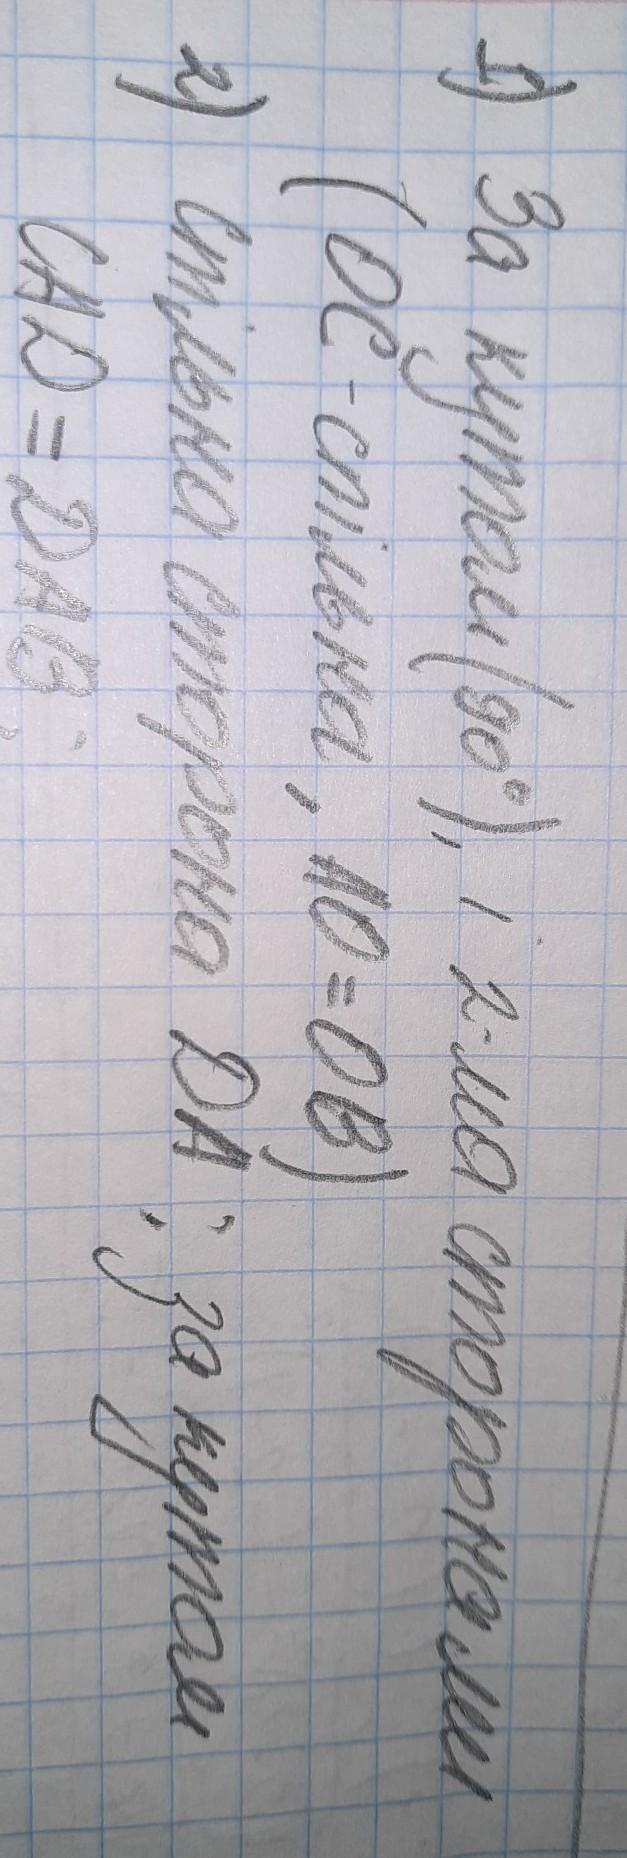 1) За кутом (90°), і 2-ма сторонами
(OC - спільна, AO = OB)
2) спільно сторона DA; за кутом
CAD = DAB;